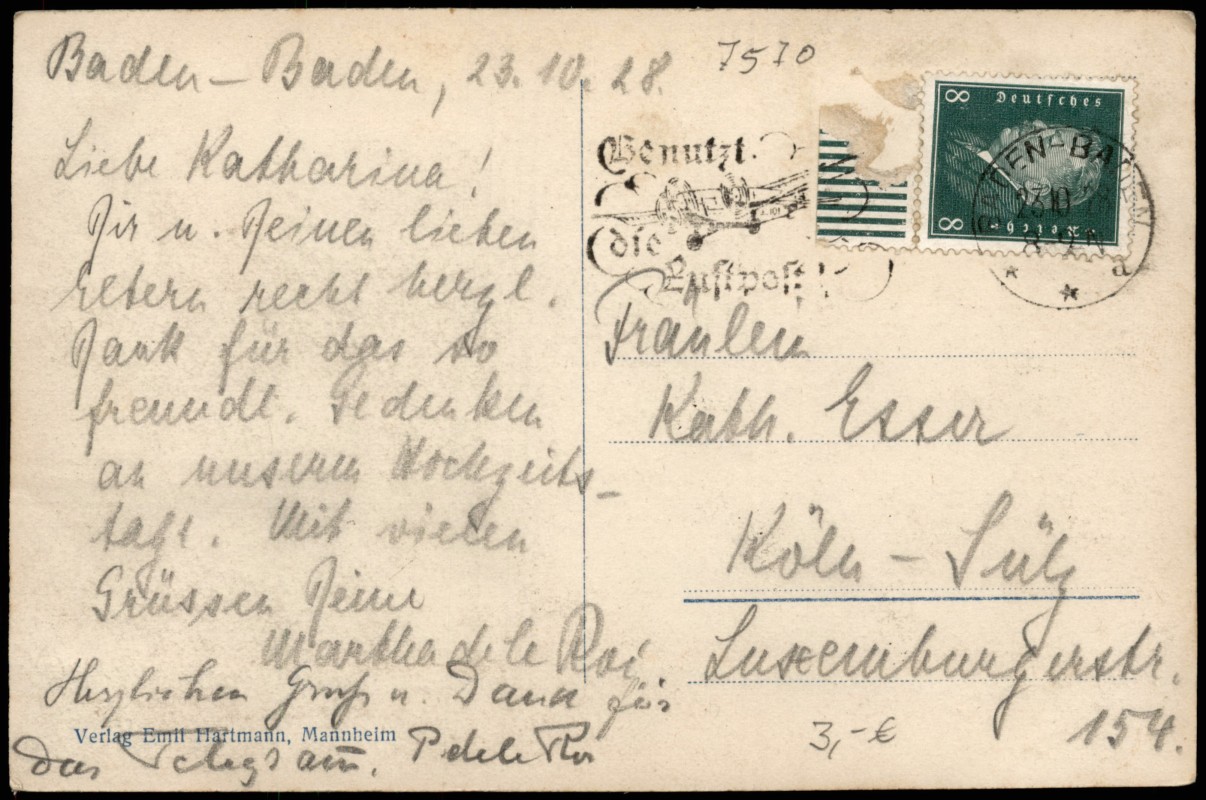 Baden-Baden, 23.10.28.
7570
Liebe Katharina!
Dir u. Deinen lieben
Eltern recht herzl.
Dank für das so
freundl. Gedenken
an unseren Hochzeits-
tage. Mit vielen
Grüssen Deine
Martha de le Roi
Herzlichen Gruß u. Dank für
das Telegramm. P de le Roi
Verlag Emil Hartmann, Mannheim
Benutzt
die
Luftpost!
8 Deutsches
Reich 8
BADEN-BADEN
23.10
8-9 N
a
Fräulein
Kath. Esser
Köln-Sülz
Luxemburgerstr.
154.
3,-€